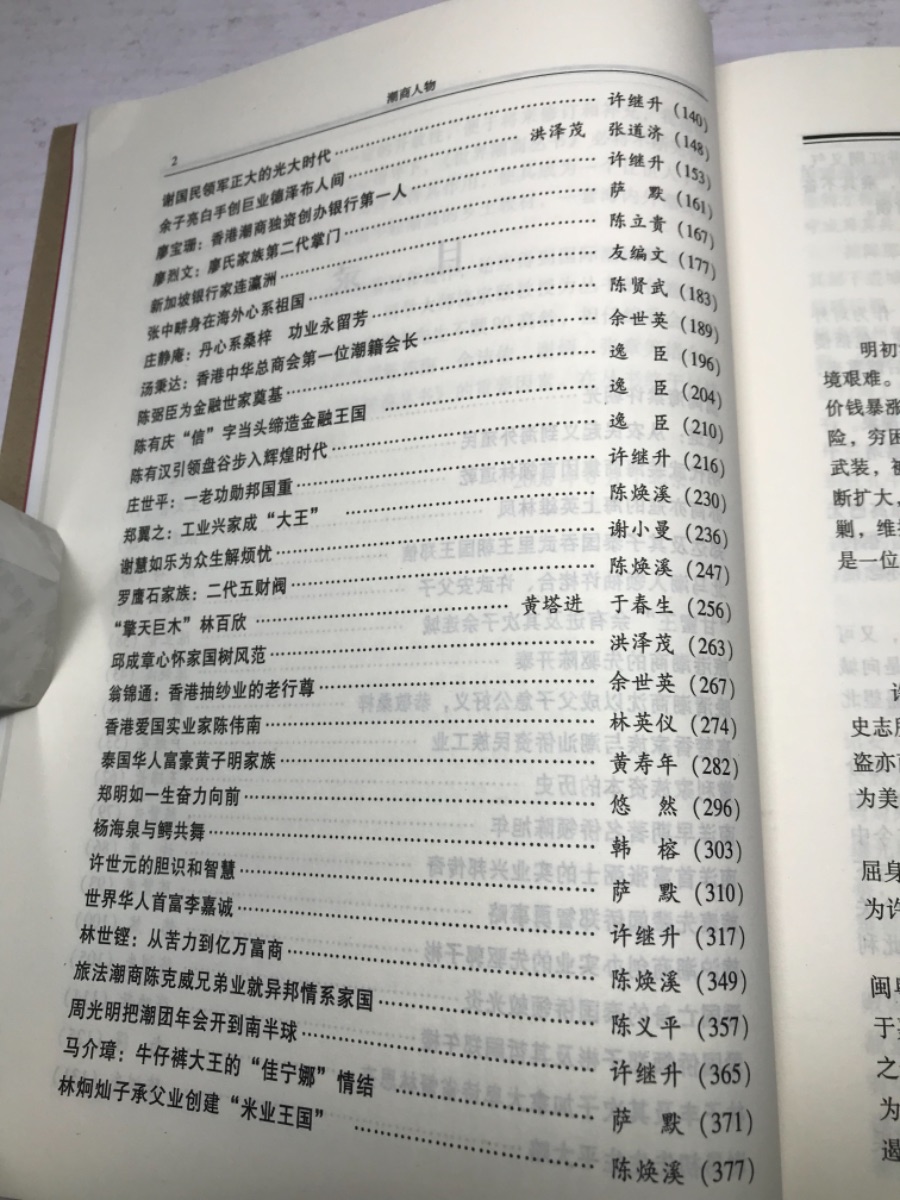 潮商人物
2
谢国民领军正大的光大时代………………许继升 (140)
余子亮白手创巨业德泽布人间………………洪泽茂 张道济 (148)
廖宝珊：香港潮商独资创办银行第一人………………许继升 (153)
廖烈文：廖氏家族第二代掌门………………萨 默 (161)
新加坡银行家连瀛洲………………陈立贵 (167)
张中畊身在海外心系祖国………………友编文 (177)
庄静庵：丹心系桑梓 功业永留芳………………陈贤武 (183)
汤秉达：香港中华总商会第一位潮籍会长………………余世英 (189)
陈弼臣为金融世家奠基………………逸 臣 (196)
陈有庆“信”字当头缔造金融王国………………逸 臣 (204)
陈有汉引领盘谷步入辉煌时代………………逸 臣 (210)
庄世平：一老功勋邦国重………………许继升 (216)
郑翼之：工业兴家成“大王”………………陈焕溪 (230)
谢慧如乐为众生解烦忧………………谢小曼 (236)
罗鹰石家族：二代五财阀………………陈焕溪 (247)
“擎天巨木”林百欣………………黄塔进 于春生 (256)
邱成章心怀家国树风范………………洪泽茂 (263)
翁锦通：香港抽纱业的老行尊………………余世英 (267)
香港爱国实业家陈伟南………………林英仪 (274)
泰国华人富豪黄子明家族………………黄寿年 (282)
郑明如一生奋力向前………………悠 然 (296)
杨海泉与鳄共舞………………韩 榕 (303)
许世元的胆识和智慧………………萨 默 (310)
世界华人首富李嘉诚………………许继升 (317)
林世铿：从苦力到亿万富商………………陈焕溪 (349)
旅法潮商陈克威兄弟业就异邦情系家国………………陈义平 (357)
周光明把潮团年会开到南半球………………许继升 (365)
马介璋：牛仔裤大王的“佳宁娜”情结………………萨 默 (371)
林炯灿子承父业创建“米业王国”………………陈焕溪 (377)
明初
境艰难。
价钱暴涨
险，穷困
武装，被
断扩大，
剿，维
是一位
史志
盗亦
为美
屈身
为许
闽
于
之
为
遏